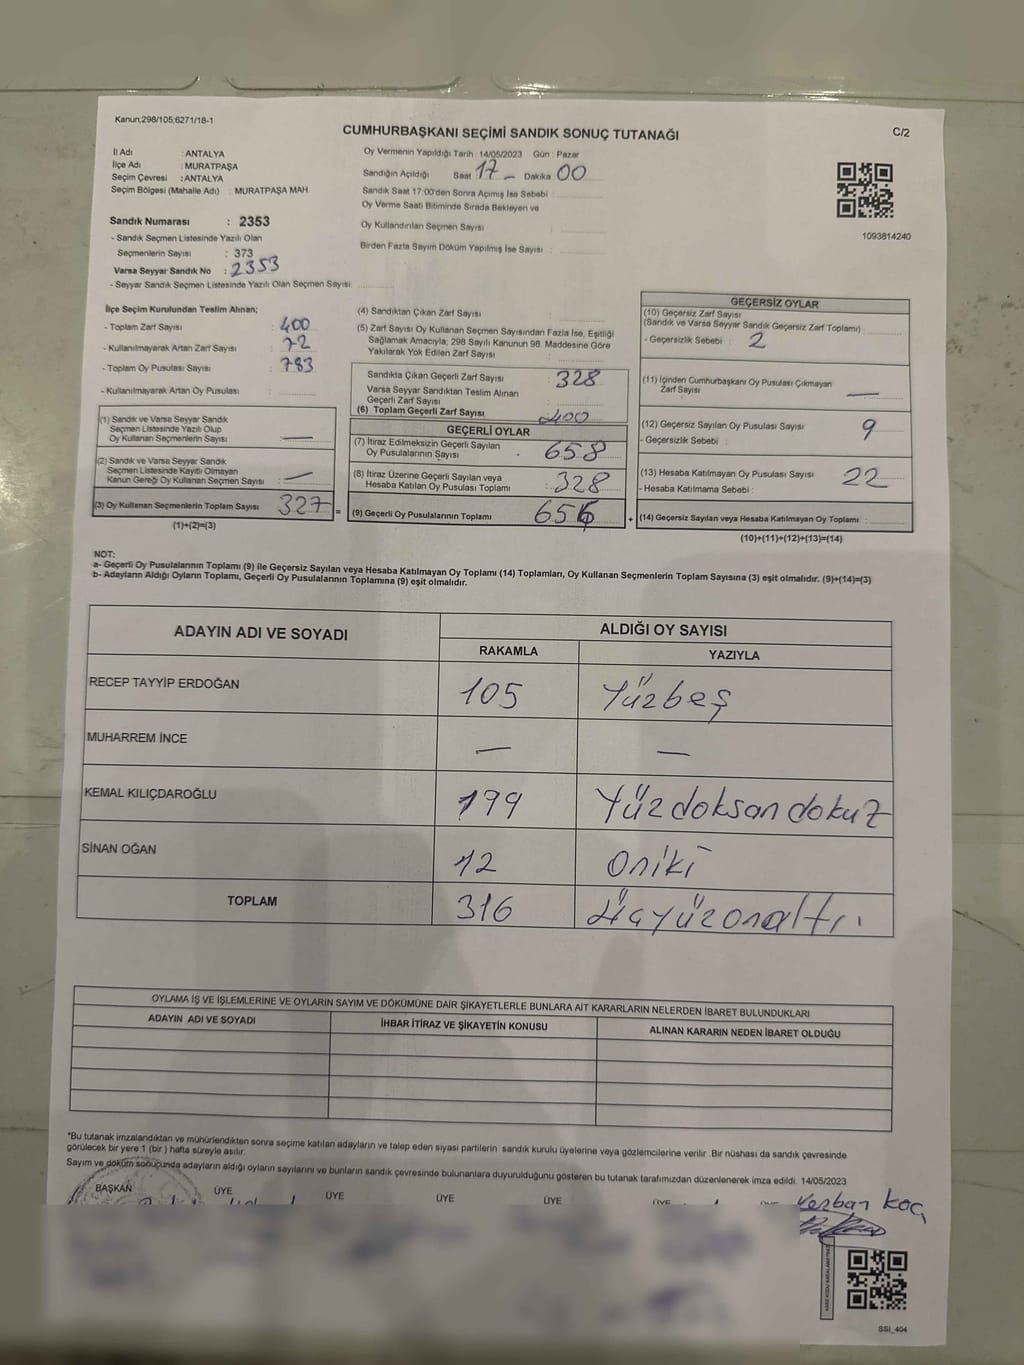 Kanun;298/105;6271/18-1
CUMHURBAŞKANI SEÇİMİ SANDIK SONUÇ TUTANAĞI
C/2
İl Adı : ANTALYA
İlçe Adı : MURATPAŞA
Seçim Çevresi : ANTALYA
Seçim Bölgesi (Mahalle Adı) : MURATPAŞA MAH.
Sandık Numarası : 2353
- Sandık Seçmen Listesinde Yazılı Olan
Seçmenlerin Sayısı : 373
Varsa Seyyar Sandık No : 2353
- Seyyar Sandık Seçmen Listesinde Yazılı Olan Seçmen Sayısı:
Oy Vermenin Yapıldığı Tarih : 14/05/2023 Gün : Pazar
Sandığın Açıldığı Saat 17 - Dakika 00
Sandık Saat 17:00'den Sonra Açımış İse Sebebi :
Oy Verme Saati Bitiminde Sırada Bekleyen ve
Oy Kullandırılan Seçmen Sayısı :
Birden Fazla Sayım Döküm Yapılmış İse Sayısı :
1093814240
İlçe Seçim Kurulundan Teslim Alınan;
- Toplam Zarf Sayısı : 400
- Kullanılmayarak Artan Zarf Sayısı : 72
- Toplam Oy Pusulası Sayısı : 783
- Kullanılmayarak Artan Oy Pusulası :
(1) Sandık ve Varsa Seyyar Sandık
Seçmen Listesinde Yazılı Olup
Oy Kullanan Seçmenlerin Sayısı : —
(2) Sandık ve Varsa Seyyar Sandık
Seçmen Listesinde Kayıtlı Olmayan
Kanun Gereği Oy Kullanan Seçmen Sayısı : —
(3) Oy Kullanan Seçmenlerin Toplam Sayısı : 327 =
(1)+(2)=(3)
(4) Sandıktan Çıkan Zarf Sayısı :
(5) Zarf Sayısı Oy Kullanan Seçmen Sayısından Fazla İse, Eşitliği
Sağlamak Amacıyla; 298 Sayılı Kanunun 98. Maddesine Göre
Yakılarak Yok Edilen Zarf Sayısı :
Sandıkta Çıkan Geçerli Zarf Sayısı : 328
Varsa Seyyar Sandıktan Teslim Alınan
Geçerli Zarf Sayısı :
(6) Toplam Geçerli Zarf Sayısı 400
GEÇERLİ OYLAR
(7) İtiraz Edilmeksizin Geçerli Sayılan
Oy Pusulalarının Sayısı : 658
(8) İtiraz Üzerine Geçerli Sayılan veya
Hesaba Katılan Oy Pusulası Toplamı : 328
(9) Geçerli Oy Pusulalarının Toplamı 656 +
GEÇERSİZ OYLAR
(10) Geçersiz Zarf Sayısı
(Sandık ve Varsa Seyyar Sandık Geçersiz Zarf Toplamı) :
- Geçersizlik Sebebi : 2
(11) İçinden Cumhurbaşkanı Oy Pusulası Çıkmayan
Zarf Sayısı : —
(12) Geçersiz Sayılan Oy Pusulası Sayısı : 9
- Geçersizlik Sebebi :
(13) Hesaba Katılmayan Oy Pusulası Sayısı : 22
- Hesaba Katılmama Sebebi :
(14) Geçersiz Sayılan veya Hesaba Katılmayan Oy Toplamı :
(10)+(11)+(12)+(13)=(14)
NOT:
a- Geçerli Oy Pusulalarının Toplamı (9) ile Geçersiz Sayılan veya Hesaba Katılmayan Oy Toplamı (14) Toplamları, Oy Kullanan Seçmenlerin Toplam Sayısına (3) eşit olmalıdır. (9)+(14)=(3)
b- Adayların Aldığı Oyların Toplamı, Geçerli Oy Pusulalarının Toplamına (9) eşit olmalıdır.
ADAYIN ADI VE SOYADI
ALDIĞI OY SAYISI
RAKAMLA YAZIYLA
RECEP TAYYİP ERDOĞAN 105 Yüzbeş
MUHARREM İNCE — —
KEMAL KILIÇDAROĞLU 199 Yüzdoksandokuz
SİNAN OĞAN 12 Oniki
TOPLAM 316 Üçyüzonaltı.
OYLAMA İŞ VE İŞLEMLERİNE VE OYLARIN SAYIM VE DÖKÜMÜNE DAİR ŞİKAYETLERLE BUNLARA AİT KARARLARIN NELERDEN İBARET BULUNDUKLARI
ADAYIN ADI VE SOYADI İHBAR İTİRAZ VE ŞİKAYETİN KONUSU ALINAN KARARIN NEDEN İBARET OLDUĞU
*Bu tutanak imzalandıktan ve mühürlendikten sonra seçime katılan adayların ve talep eden siyasi partilerin sandık kurulu üyelerine veya gözlemcilerine verilir. Bir nüshası da sandık çevresinde
görülecek bir yere 1 (bir) hafta süreyle asılır.
Sayım ve döküm sonucunda adayların aldığı oyların sayılarını ve bunların sandık çevresinde bulunanlara duyurulduğunu gösteren bu tutanak tarafımızdan düzenlenerek imza edildi. 14/05/2023
BAŞKAN ÜYE ÜYE ÜYE ÜYE ÜYE
Koç
SSİ_404